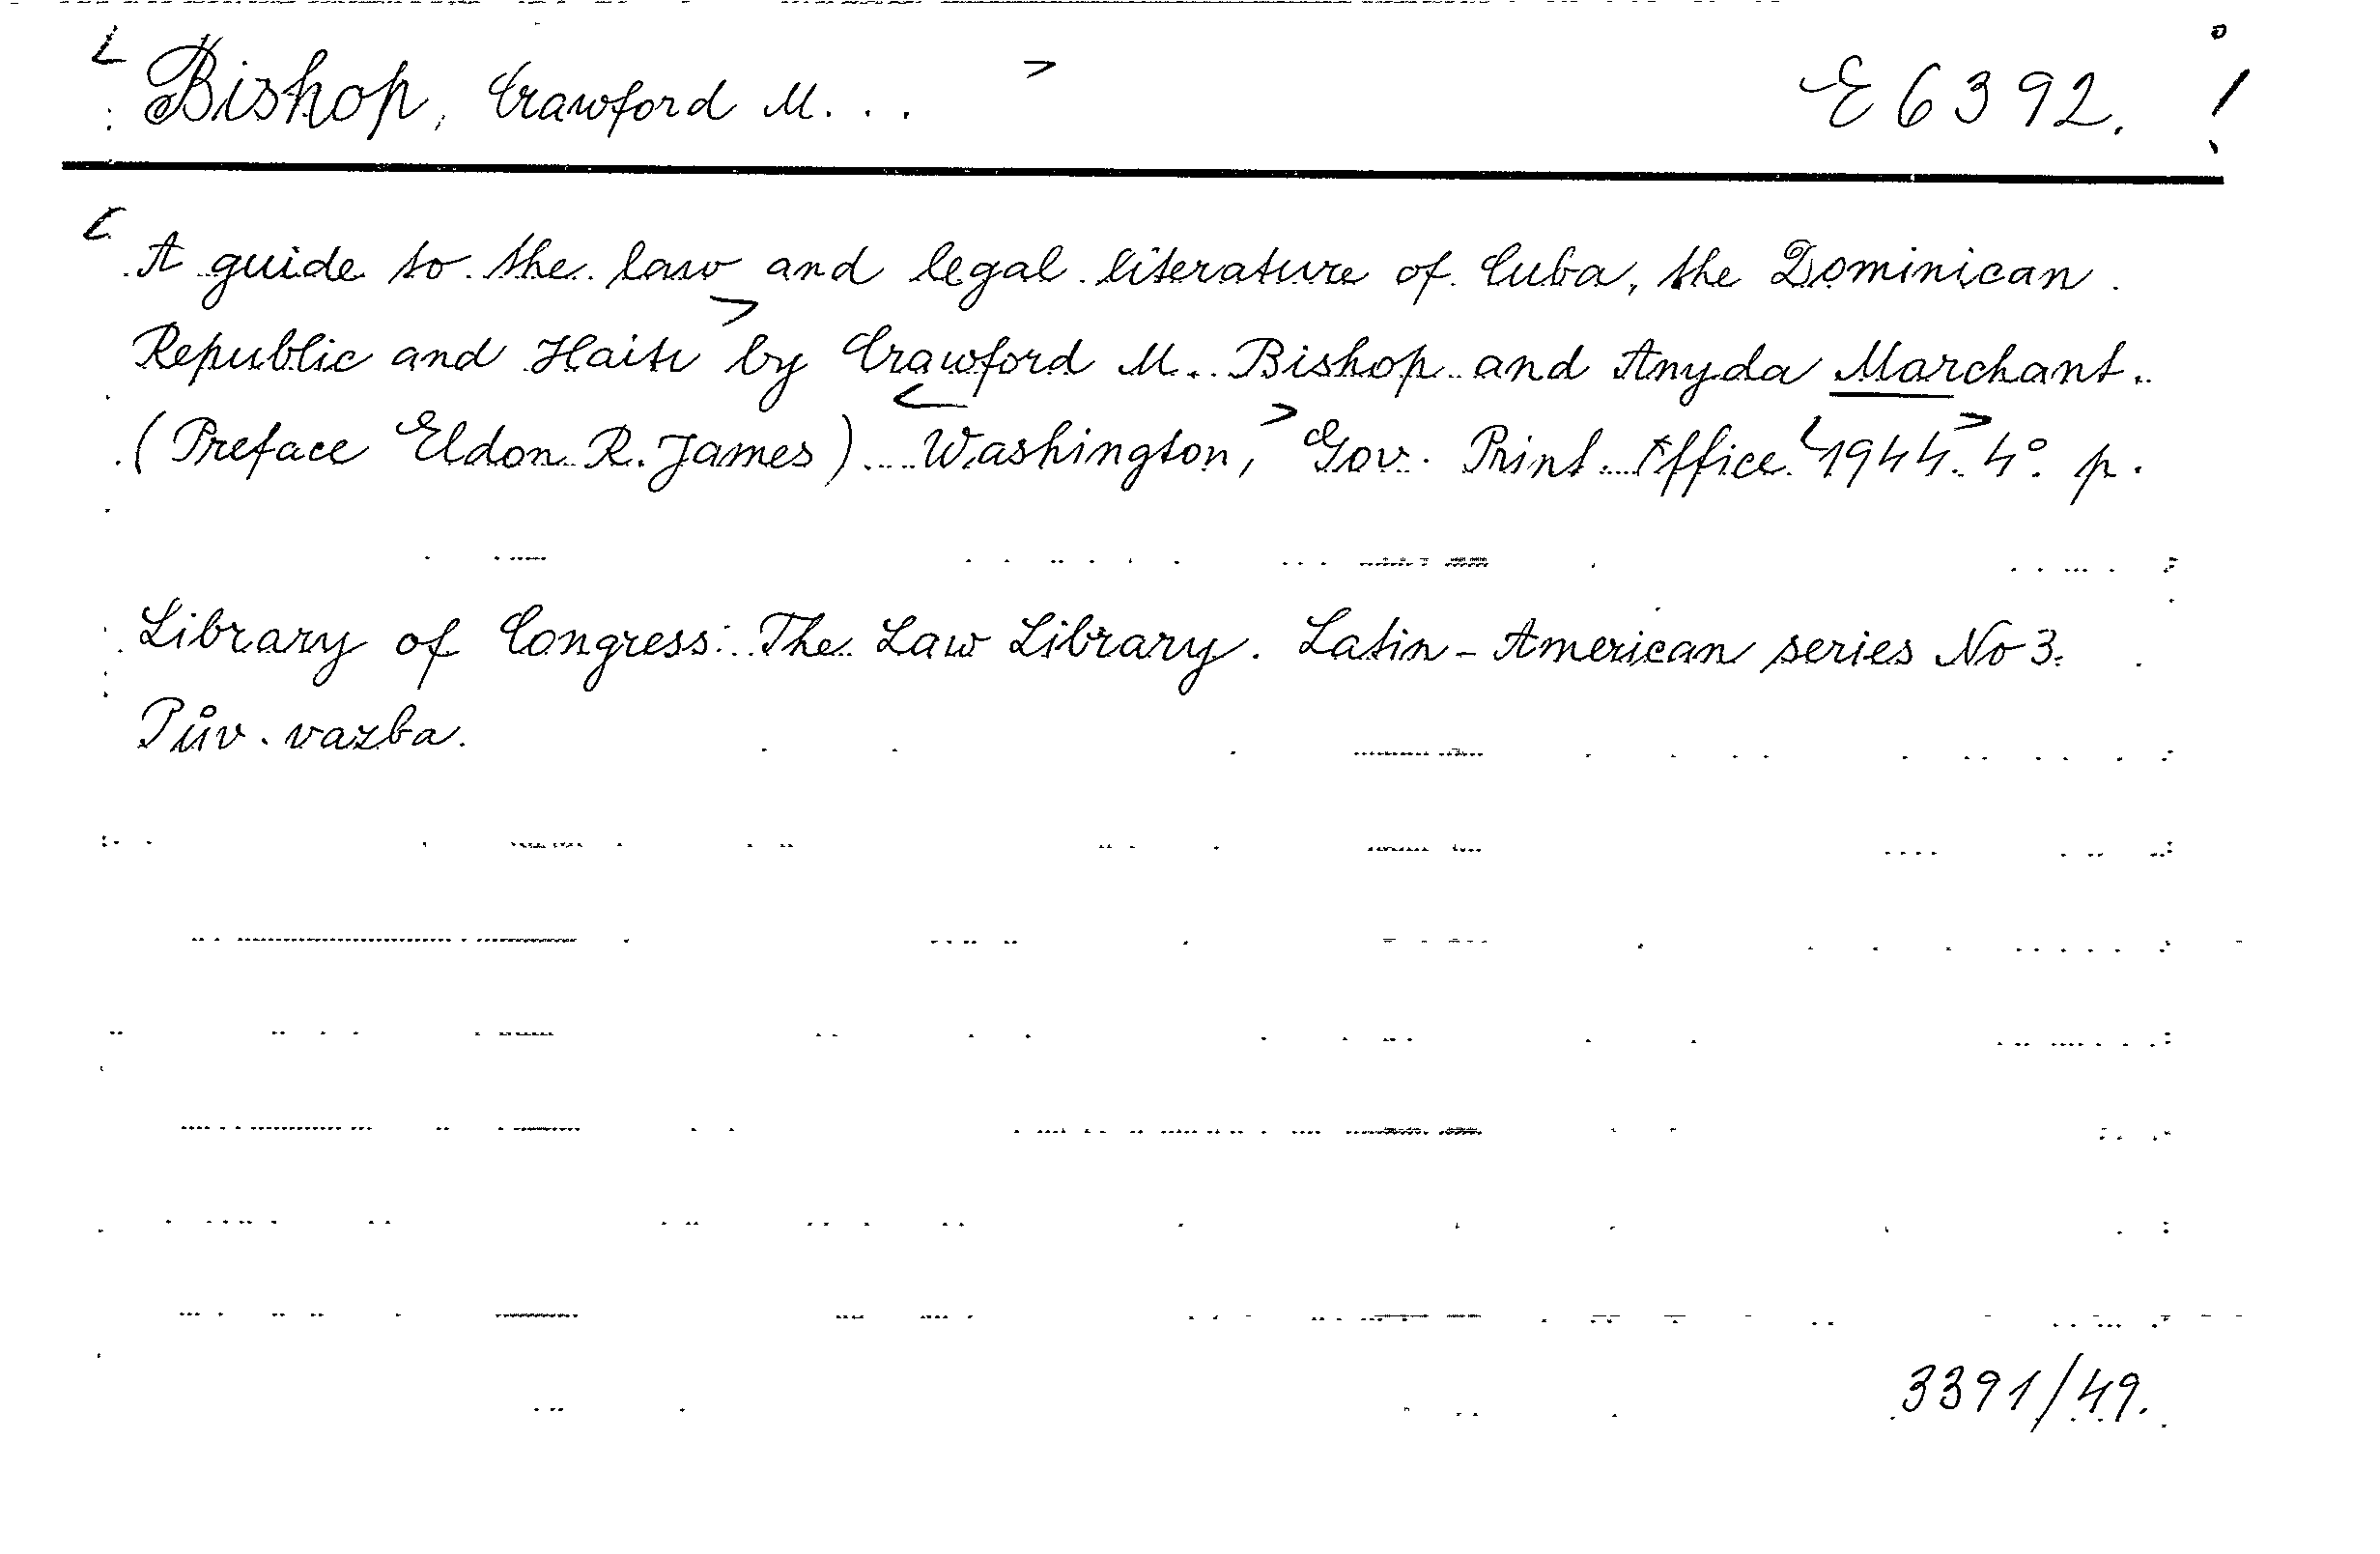 Bishop, Crawford M... E 6392.
A guide to the law and legal literature of Cuba, the Dominican
Republic and Haiti by Crawford M. Bishop and Anyda Marchant.
(Preface Eldon R. James). Washington, Gov. Print. Office 1944. 4°. p.
Library of Congress: The Law Library. Latin-American series No 3.
Pův. vazba.
3391/49.